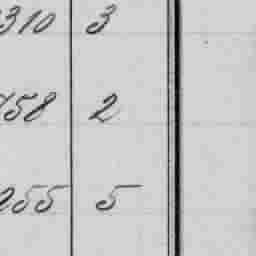 310 3
758 2
255 5